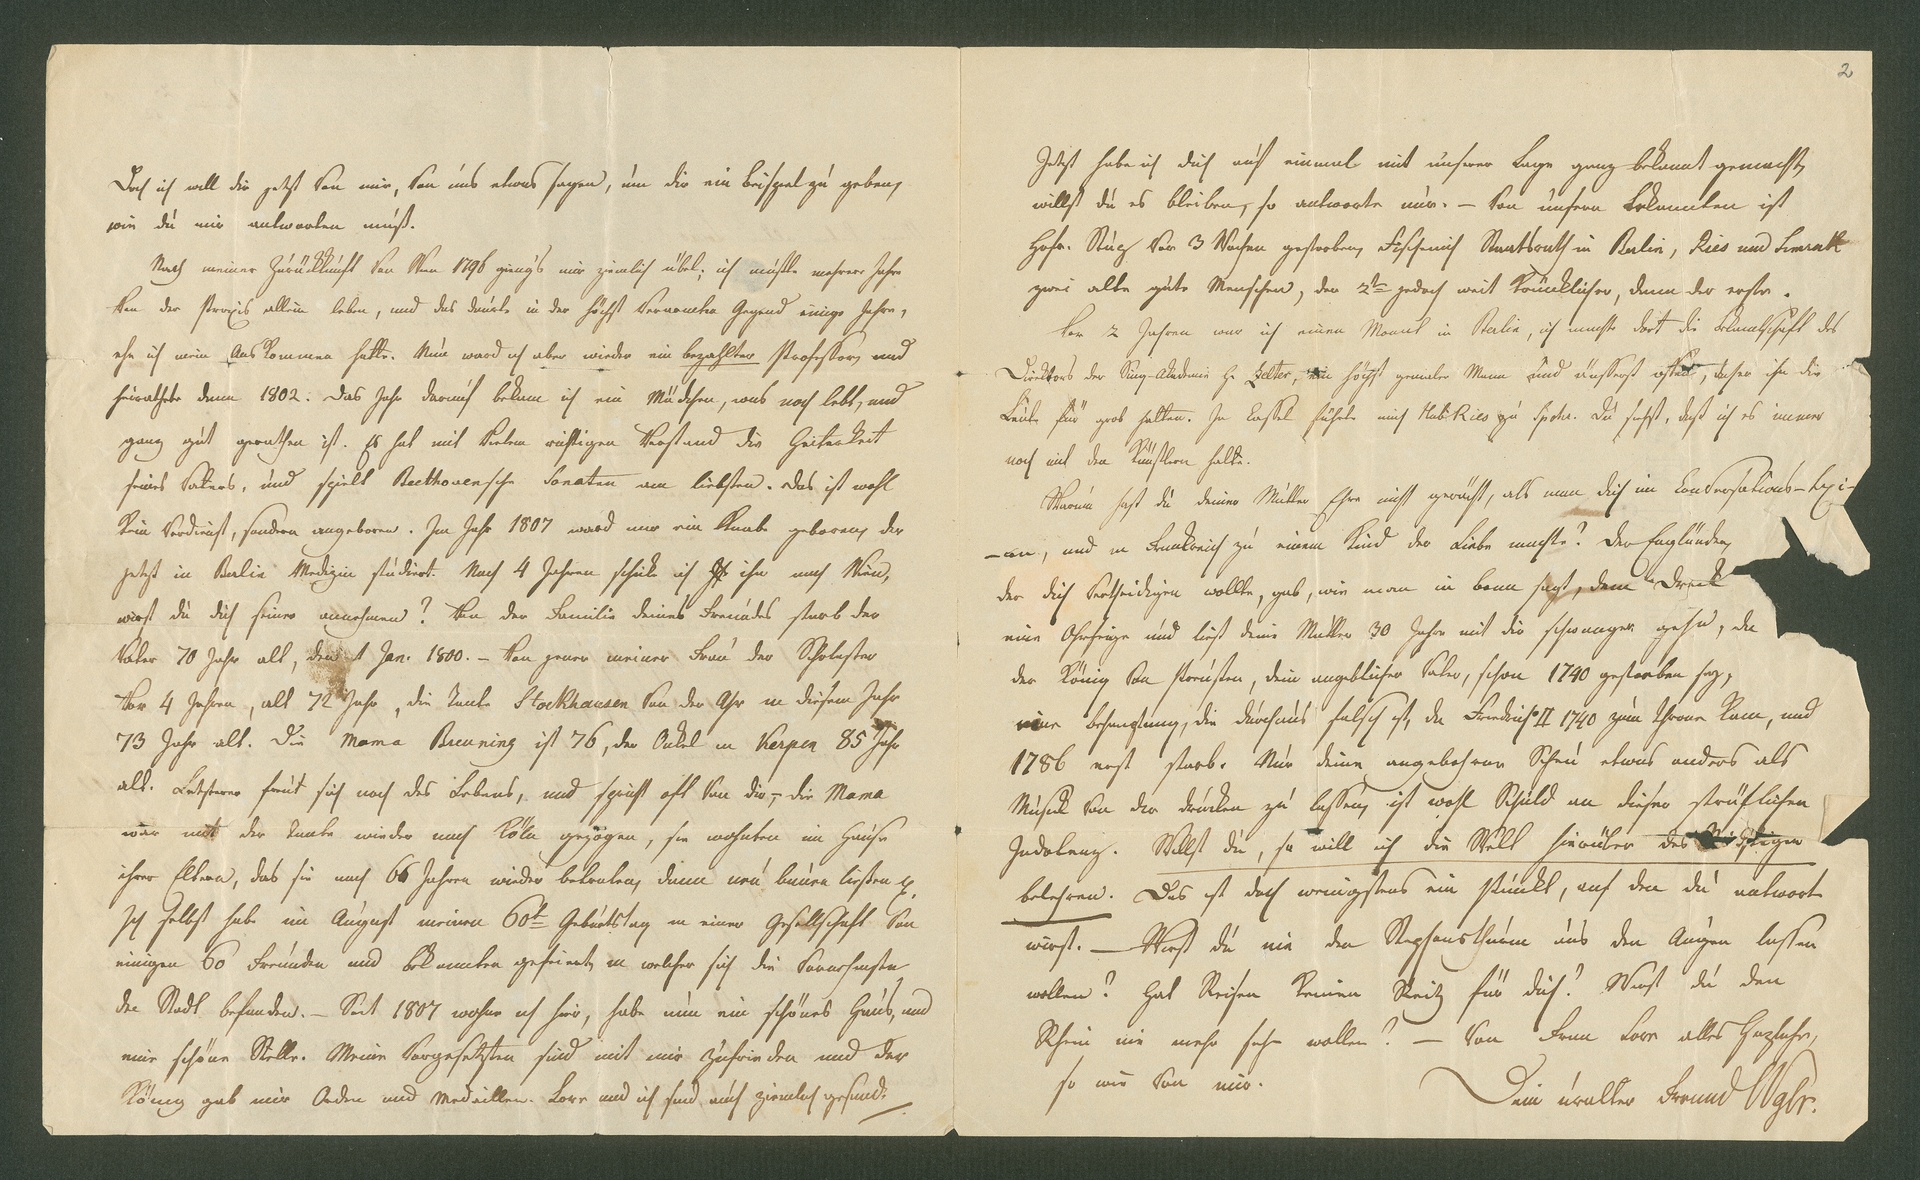 Doch ich will dir jetzt von mir, von uns etwas sagen, um dir ein Beispiel zu geben,
wie du mir antworten mußt.
Nach meiner Zurückkunft von Wien 1796 gieng's mir ziemlich übel; ich mußte mehrere Jahre
von der Praxis allein leben, und das dauerte in der höchst verarmten Gegend einige Jahre,
ehe ich mein Auskommen hatte. Nun ward ich aber wieder ein bezahlter Professor, und
heirathete dann 1802. Das Jahr darauf bekam ich ein Mädchen, was noch lebt, und
ganz gut gerathen ist. Es hat mit vielem richtigen Verstand die Heiterkeit
seines Vaters, und spielt Beethovensche Sonaten am liebsten. Das ist wohl
kein Verdienst, sondern angeboren. Im Jahr 1807 ward mir ein Knabe geboren, der
jetzt in Berlin Medizin studirt. Nach 4 Jahren schicke ich ihn nach Wien,
wirst du dich seiner annehmen? Von der Familie deines Freundes starb der
Vater 70 Jahr alt, den 1 Jan. 1800. – Von jener meiner Frau der Scholaster
vor 4 Jahren, alt 72 Jahr, die Tante Stockhausen von der Ahr in diesem Jahr
73 Jahr alt. Die Mama Breuning ist 76, der Onkel in Kerpen 85 Jahr
alt. Letzterer freut sich noch des Lebens, und spricht oft von dir, – die Mama
war mit der Tante wieder nach Köln gezogen, sie wohnten im Hause
ihrer Eltern, das sie nach 66 Jahren wieder betraten, dann neu bauen ließen x.
Ich selbst habe im August meinen 60t Geburtstag in einer Gesellschaft von
einigen 60 Freunden und Bekannten gefeiert, in welcher sich die Vornehmsten
der Stadt befanden. – Seit 1807 wohne ich hier, habe nun ein schönes Haus, und
eine schöne Stelle. Meine Vorgesetzten sind mit mir zufrieden und der
König gab mir Orden und Medaillen. Lore und ich sind auch ziemlich gesund.
2
Jetzt habe ich dich auf einmal mit unserer Lage ganz bekannt gemacht,
willst du es bleiben, so antworte nur. – Von unsern Bekannten ist
Hofr. Stup vor 3 Wochen gestorben, Fischenich Staatsrath in Berlin, Ries und Simrock
zwei alte gute Menschen, der 2te jedoch weit kränklicher, denn der erste.
Vor 2 Jahren war ich einen Monat in Berlin, ich machte dort die Bekanntschaft des
Direktors der Sing-Akademie H. Zelter, ein höchst genialer Mann und äusserst offen, daher ihn die
Leute für grob halten. In Cassel führte mich Hub. Ries zu Spohr. Du siehst, daß ich es immer
noch mit den Künstlern halte.
Warum hast du deiner Mutter Ehre nicht gerächt, als man dich im Conversations-Lexi-
-con, und in Frankreich zu einem Kind der Liebe machte? Der Engländer,
der dich vertheidigen wollte, gab, wie man in Bonn sagt, dem Dreck
eine Ohrfeige und ließ deine Mutter 30 Jahre mit dir schwanger gehn, da
der König von Preußen, dein angeblicher Vater, schon 1740 gestorben sey,
eine Behauptung, die durchaus falsch ist, da Friedrich II 1740 zum Throne kam, und
1786 erst starb. Nur deine angeborene Scheu etwas anders als
Musik von dir drucken zu lassen, ist wohl Schuld an dieser sträflichen
Indolenz. Willst du, so will ich die Welt hierüber des Richtigen
belehren. Das ist doch wenigstens ein Punkt, auf den du antworten
wirst. – Wirst du nie den Stephansthurm aus den Augen lassen
wollen? Hat Reisen keinen Reitz für dich? Wirst du den
Rhein nie mehr sehn wollen? – Von Frau Lore alles Herzliche,
so wie von mir.
Dein uralter Freund Wglr.